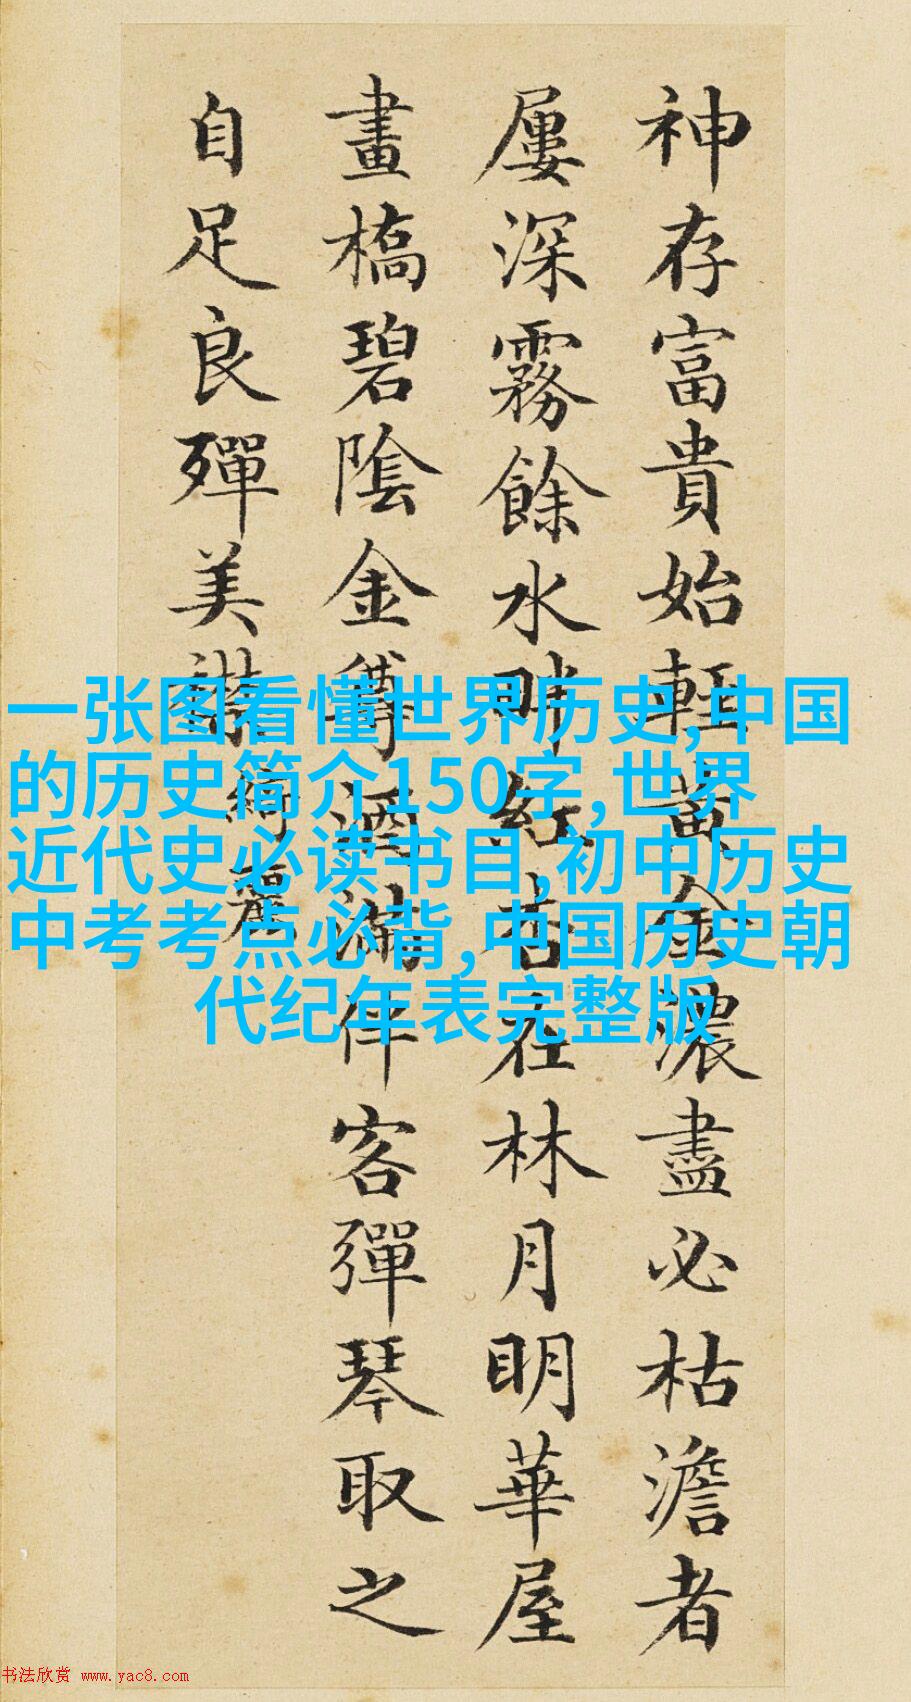 神存富貴始輕黃金濃盡必枯澹者
屢深霧餘水畔紅杏在林月明華屋
畫橋碧陰金罇酒滿伴客彈琴取之
自足良殫美襟
綺麗
一张图看懂世界历史,中国
的历史简介150字,世界
近代史必读书目,初中历史
中考考点必背,中国历史朝
代纪年表完整版
书法欣赏 www.yac8.com